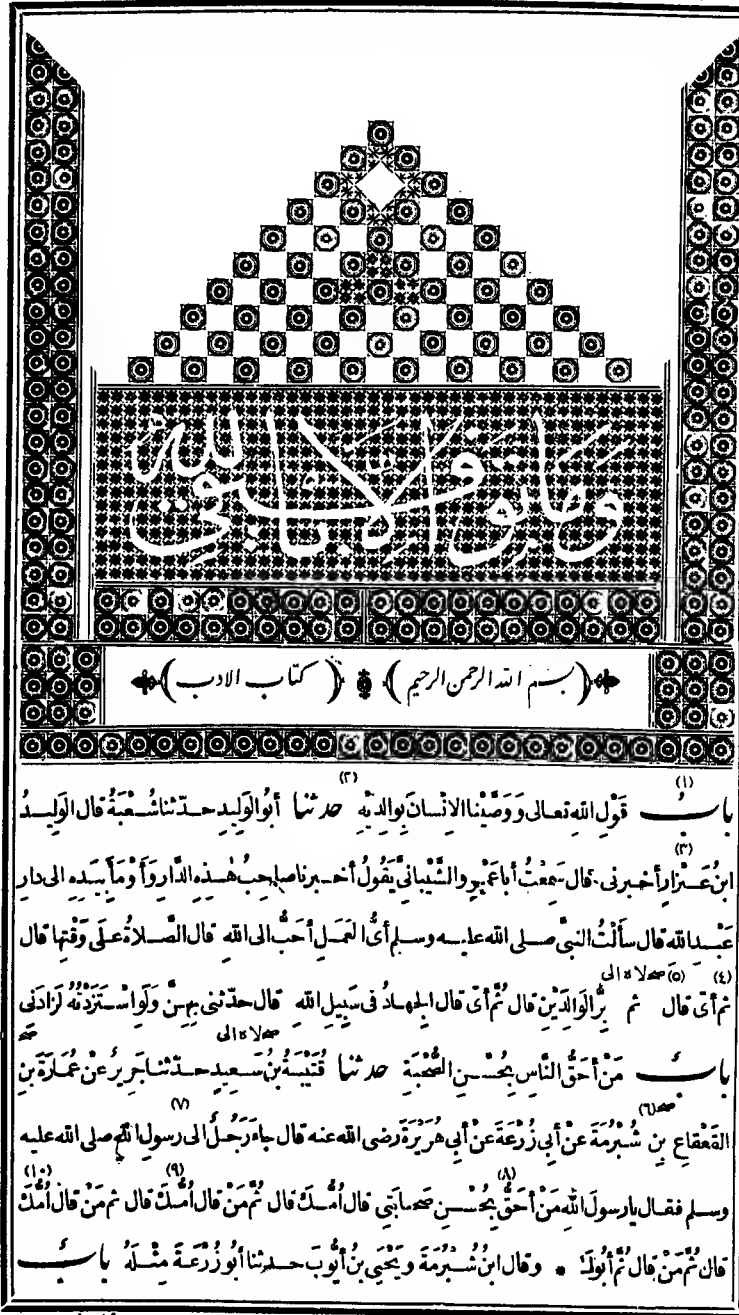 وما توفيقي إلا بالله
(بسم الله الرحمن الرحيم) (كتاب الادب)
(١) (٢)
بابُ قَوْلِ اللهِ تعالى وَوَصَّيْنَا الاِنْسانَ بِوالِدَيْهِ حدثنا أبُو الوَلِيدِ حدّثنا شُعْبَةُ قال الوَلِيدُ
(٣)
ابنُ عَيْزارٍ أخبرنى قال سَمِعْتُ أباعَمْرٍو الشَّيْبانىَّ يَقُولُ أخبرنا صاحِبُ هٰذِهِ الدَّارِ وَأَوْمَأَ بِيَدِهِ الى دارِ
عَبْدِ الله قال سَأَلْتُ النبىَّ صلى الله عليه وسلم أىُّ العَمَلِ أحَبُّ الى اللهِ قال الصَّلاةُ عَلَى وَقْتِها قال
(٤) (٥) صح لاة الى
ثم أىّ قال ثم بِرُّ الوَالِدَيْنِ قال ثُمَّ أىّ قال الجِهادُ فى سَبِيلِ اللهِ قال حدّثنى بِهِنَّ وَلَوِ اسْتَزَدْتُهُ لَزَادَنى
بابُ مَنْ أحَقُّ النَّاسِ بِحُسْنِ الصُّحْبَةِ حدثنا قُتَيْبَةُ بنُ سَعِيدٍ حدّثنا جَرِيرٌ عنْ عُمَارَةَ بنِ
(٦) (٧)
القَعْقاعِ بنِ شُبْرُمَةَ عنْ أبى زُرْعَةَ عنْ أبى هُرَيْرَةَ رضى الله عنه قال جاءَ رَجُلٌ الى رسولِ اللهِ صلى الله عليه
(٨) (٩) (١٠)
وسلم فقال يارسولَ اللهِ مَنْ أحَقُّ بِحُسْنِ صَحابَتِى قال أُمُّكَ قال ثُمَّ مَنْ قال أُمُّكَ قال ثم مَنْ قال أُمُّكَ
قال ثُمَّ مَنْ قال ثُمَّ أبُوكَ * وقال ابنُ شُبْرُمَةَ ويَحْيَى بنُ أيُّوبَ حدثنا أبُو زُرْعَةَ مِثْلَهُ بابُ